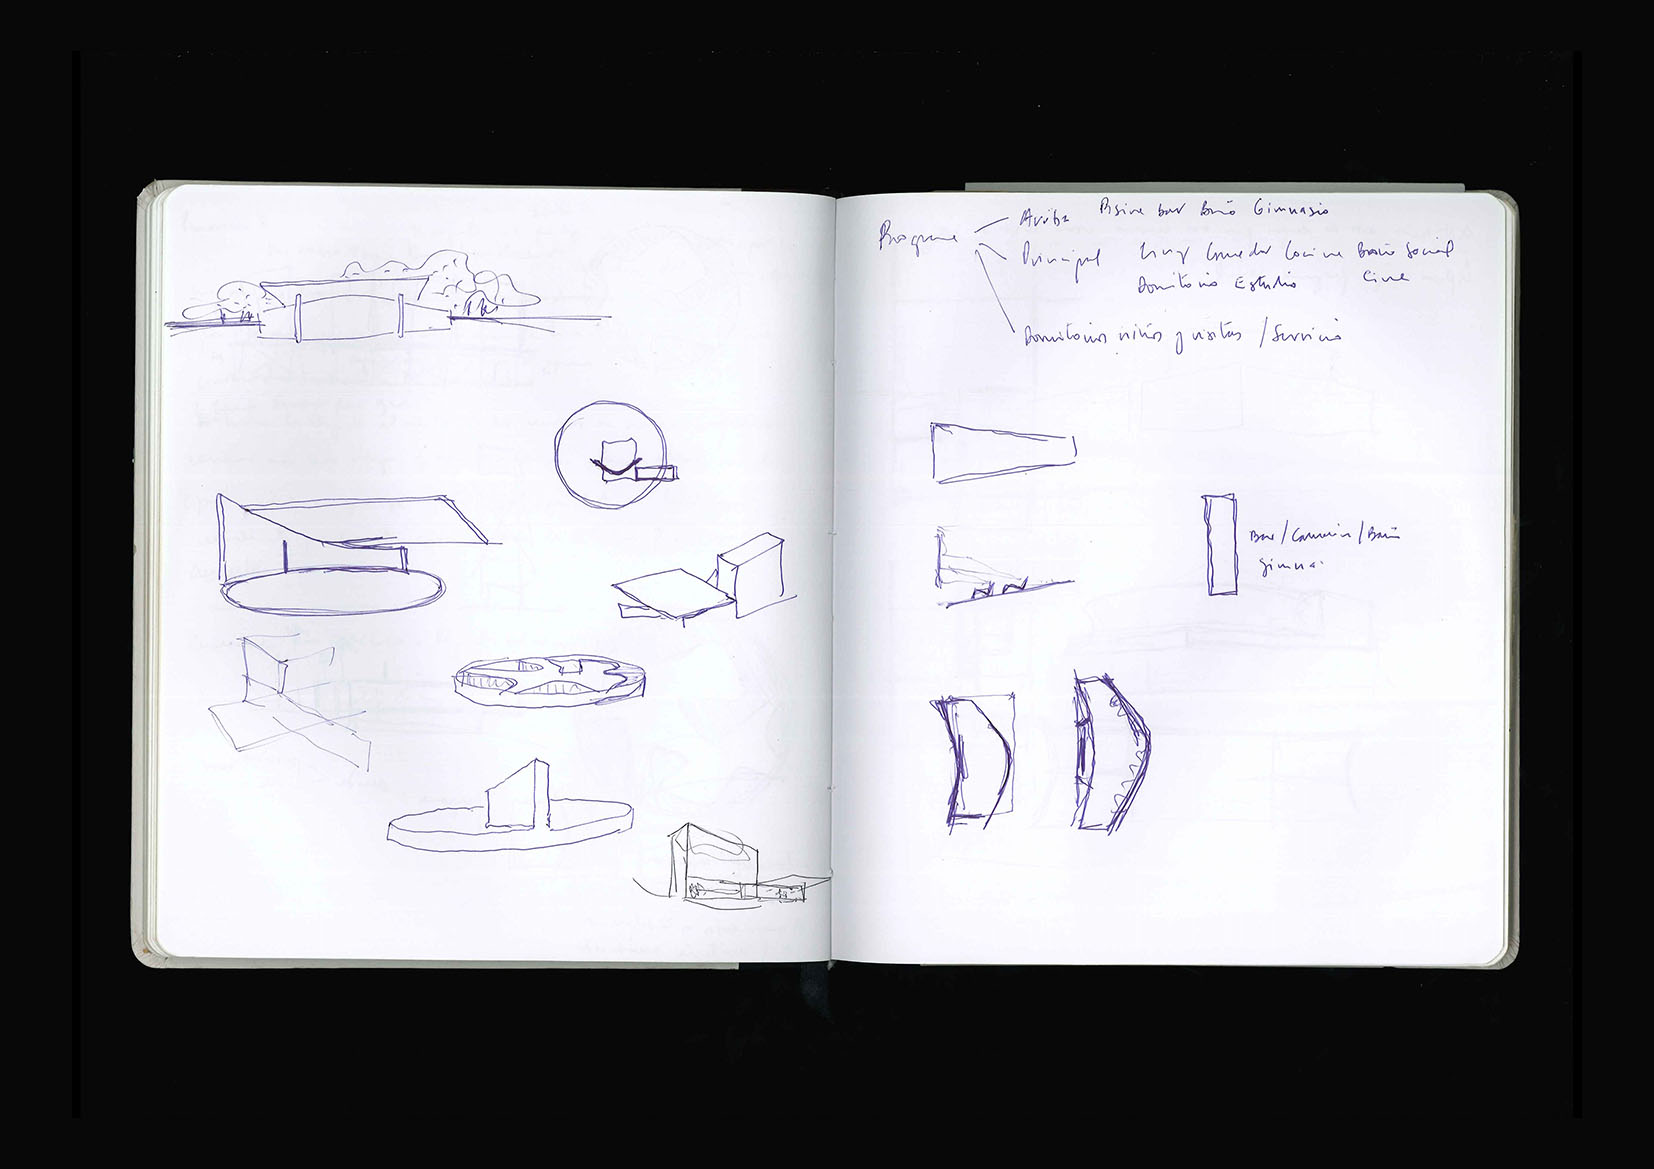 Programa
Arriba Piscina bar Baño Gimnasio
Principal Living Comedor Cocina Baño Social
Dormitorio Estudio Cine
Dormitorios niños y visitas / Servicio
Bar / Camarín / Baño
gimna.